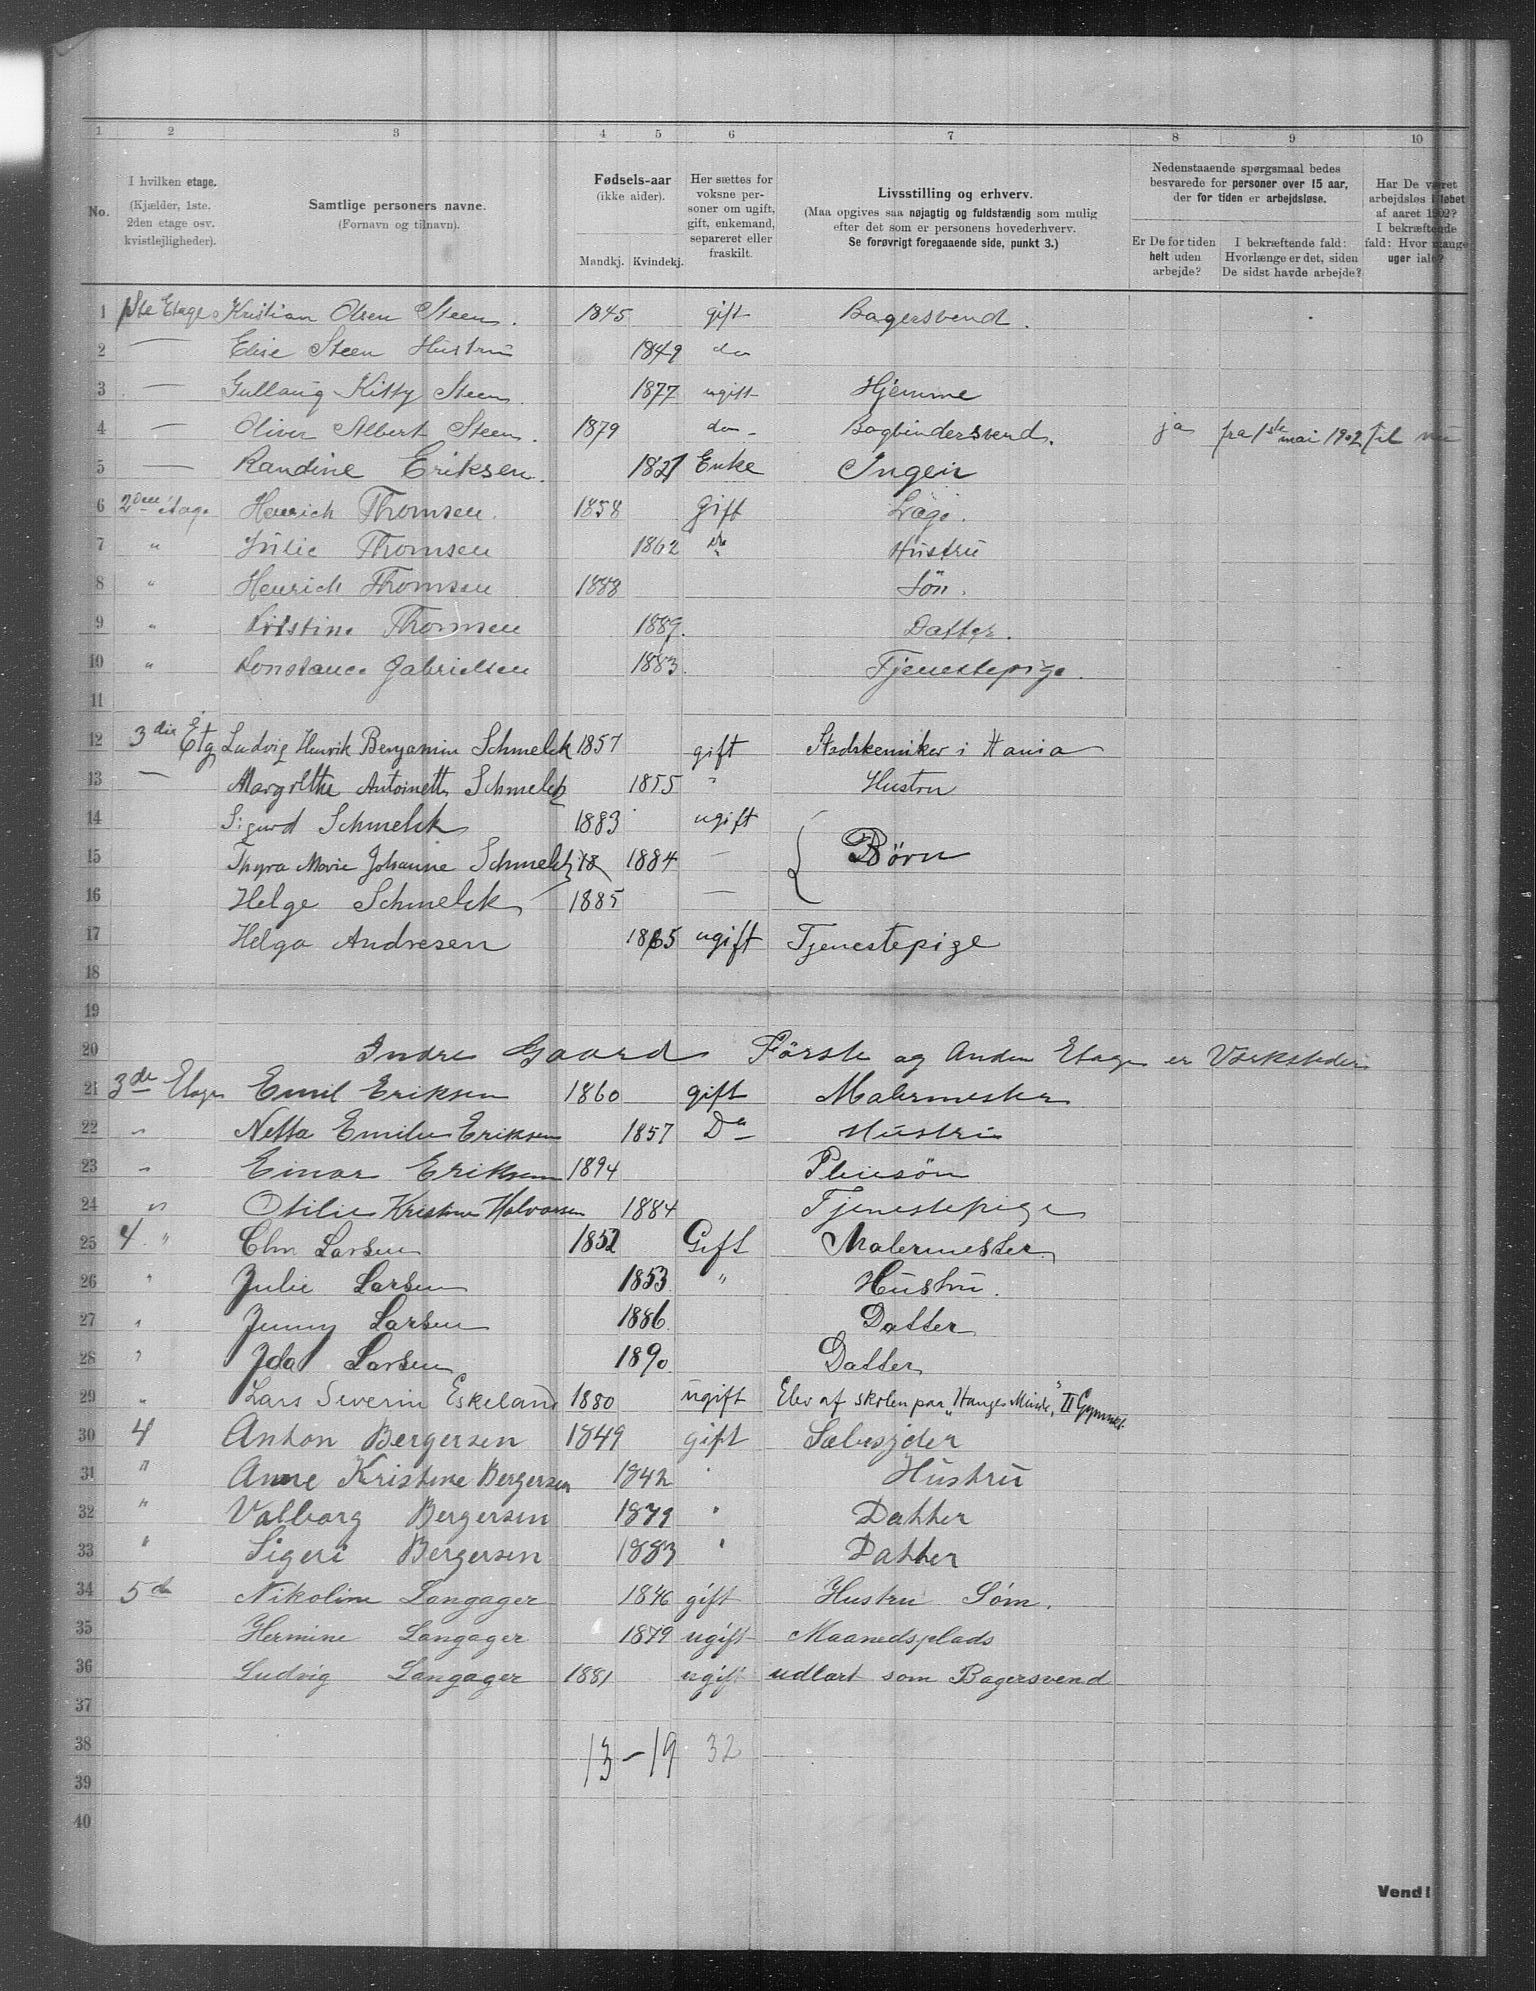 1 2 3 4 5 6 7 8 9 10
No. I hvilken etage. (Kjælder, 1ste. 2den etage osv. kvistlejligheder). Samtlige personers navne. (Fornavn og tilnavn). Fødsels-aar (ikke alder). Mandkj. Kvindekj. Her sættes for voksne personer om ugift, gift, enkemand, separeret eller fraskilt. Livsstilling og erhverv. (Maa opgives saa nøjagtig og fuldstændig som mulig efter det som er personens hovederhverv. Se forøvrigt foregaaende side, punkt 3.) Nedenstaaende spørgsmaal bedes besvarede for personer over 15 aar, der for tiden er arbejdsløse. Er De for tiden helt uden arbejde? I bekræftende fald: Hvorlænge er det, siden De sidst havde arbejde? Har De været arbejdsløs i løbet af aaret 1902? I bekræftende fald: Hvor mange uger ialt?
1 1ste Etage Kristian Olsen Steen. 1845 gift Bagersvend.
2 — Elise Steen Hustru 1849 do
3 — Gullaug Kitty Steen 1877 ugift Hjemme
4 — Oliver Albert Steen. 1879 do - Bogbindersvend. ja fra 1ste mai 1902 til nu
5 — Randine Eriksen. 1821 Enke Ingen
6 2den etage Henrich Thomsen. 1858 Gift Læge.
7 " Julie Thomsen 1862 do Hustru
8 " Henrich Thomsen 1888 Søn.
9 " Kristine Thomsen 1889. Datter.
10 " Konstance Gabrielsen 1883. Tjenestepige.
11
12 3die Etg Ludvig Henrik Benjamin Schmelck 1857 gift Stadskemiker i Kania
13 — Margrethe Antoinette Schmelck 1855 " Hustru
14 Sigurd Schmelck 1883 ugift
15 Thyra Marie Johanne Schmelck 18 1884 — { Børn
16 Helge Schmelck 1885 —
17 Helga Andresen 1865 ugift Tjenestepige
18
19
20 Indre Gaard Förste og Anden Etage er Værksteder
21 3de Etage Emil Eriksen 1860 gift Malermester
22 " Netta Emilie Eriksen 1857 Do Hustru
23 " Einar Eriksen 1894 Pleiesön
24 " Otilie Kristine Halvorsen 1884 Tjenestepige
25 4. " Chr Larsen 1852 Gift Malermester.
26 " Julie Larsen 1853 " Hustru.
27 " Jenny Larsen 1886. Datter
28 " Ida Larsen 1890. Datter
29 " Lars Severin Eskeland 1880 ugift Elev af skolen paa "Hauges Minde", II Gymnas.
30 4 Anton Bergersen 1849 gift Sæbesyder
31 " Anne Kristine Bergersen 1842 " Hustru
32 " Valborg Bergersen 1879 " Datter
33 " Sigeri Bergersen 1883 " Datter
34 5te Nikoline Langager 1846 gift Hustru Søm.
35 Hermine Langager 1879 ugift Maanedsplads
36 Ludvig Langager 1881 ugift udlært som Bagersvend
37
38 13 - 19 32
39
40
Vend!